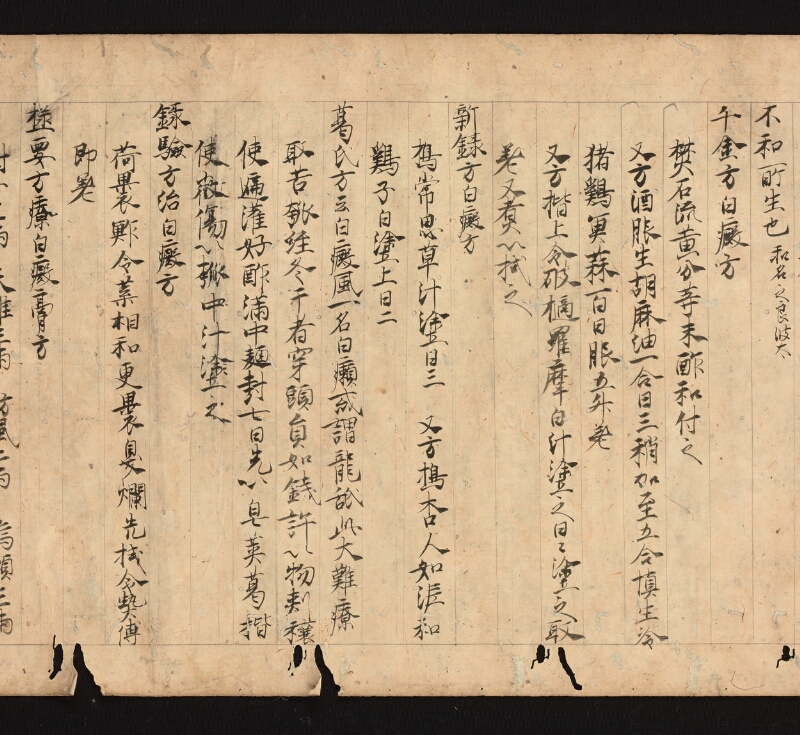 不和所生也 和名之良波太
千金方白癜方
樊石流黄分等末酢和付之
又方酒服生胡麻油一合日三稍加至五合慎生冷
猪鷄魚蒜百日服五升差
又方揩上令破擿羅摩白汁塗之日々塗之取
差又煮以拭之
新錄方白癜方
擣常思草汁塗日三 又方擣杏人如泥和
鷄子白塗上日二
葛氏方云白癜風一名白癩或謂龍舐此大難療
取苦瓠經冬干者穿頭員如錢許以物刺穰
使遍灌好酢滿中麺封七日先以皂莢葛揩
使微傷以瓠中汁塗之
錄驗方治白癜方
荷裹鮓令葉相和更裹臭爛先拭令熱傅
即差
極要方療白癜膏方
三兩 防風二兩 烏頭三兩